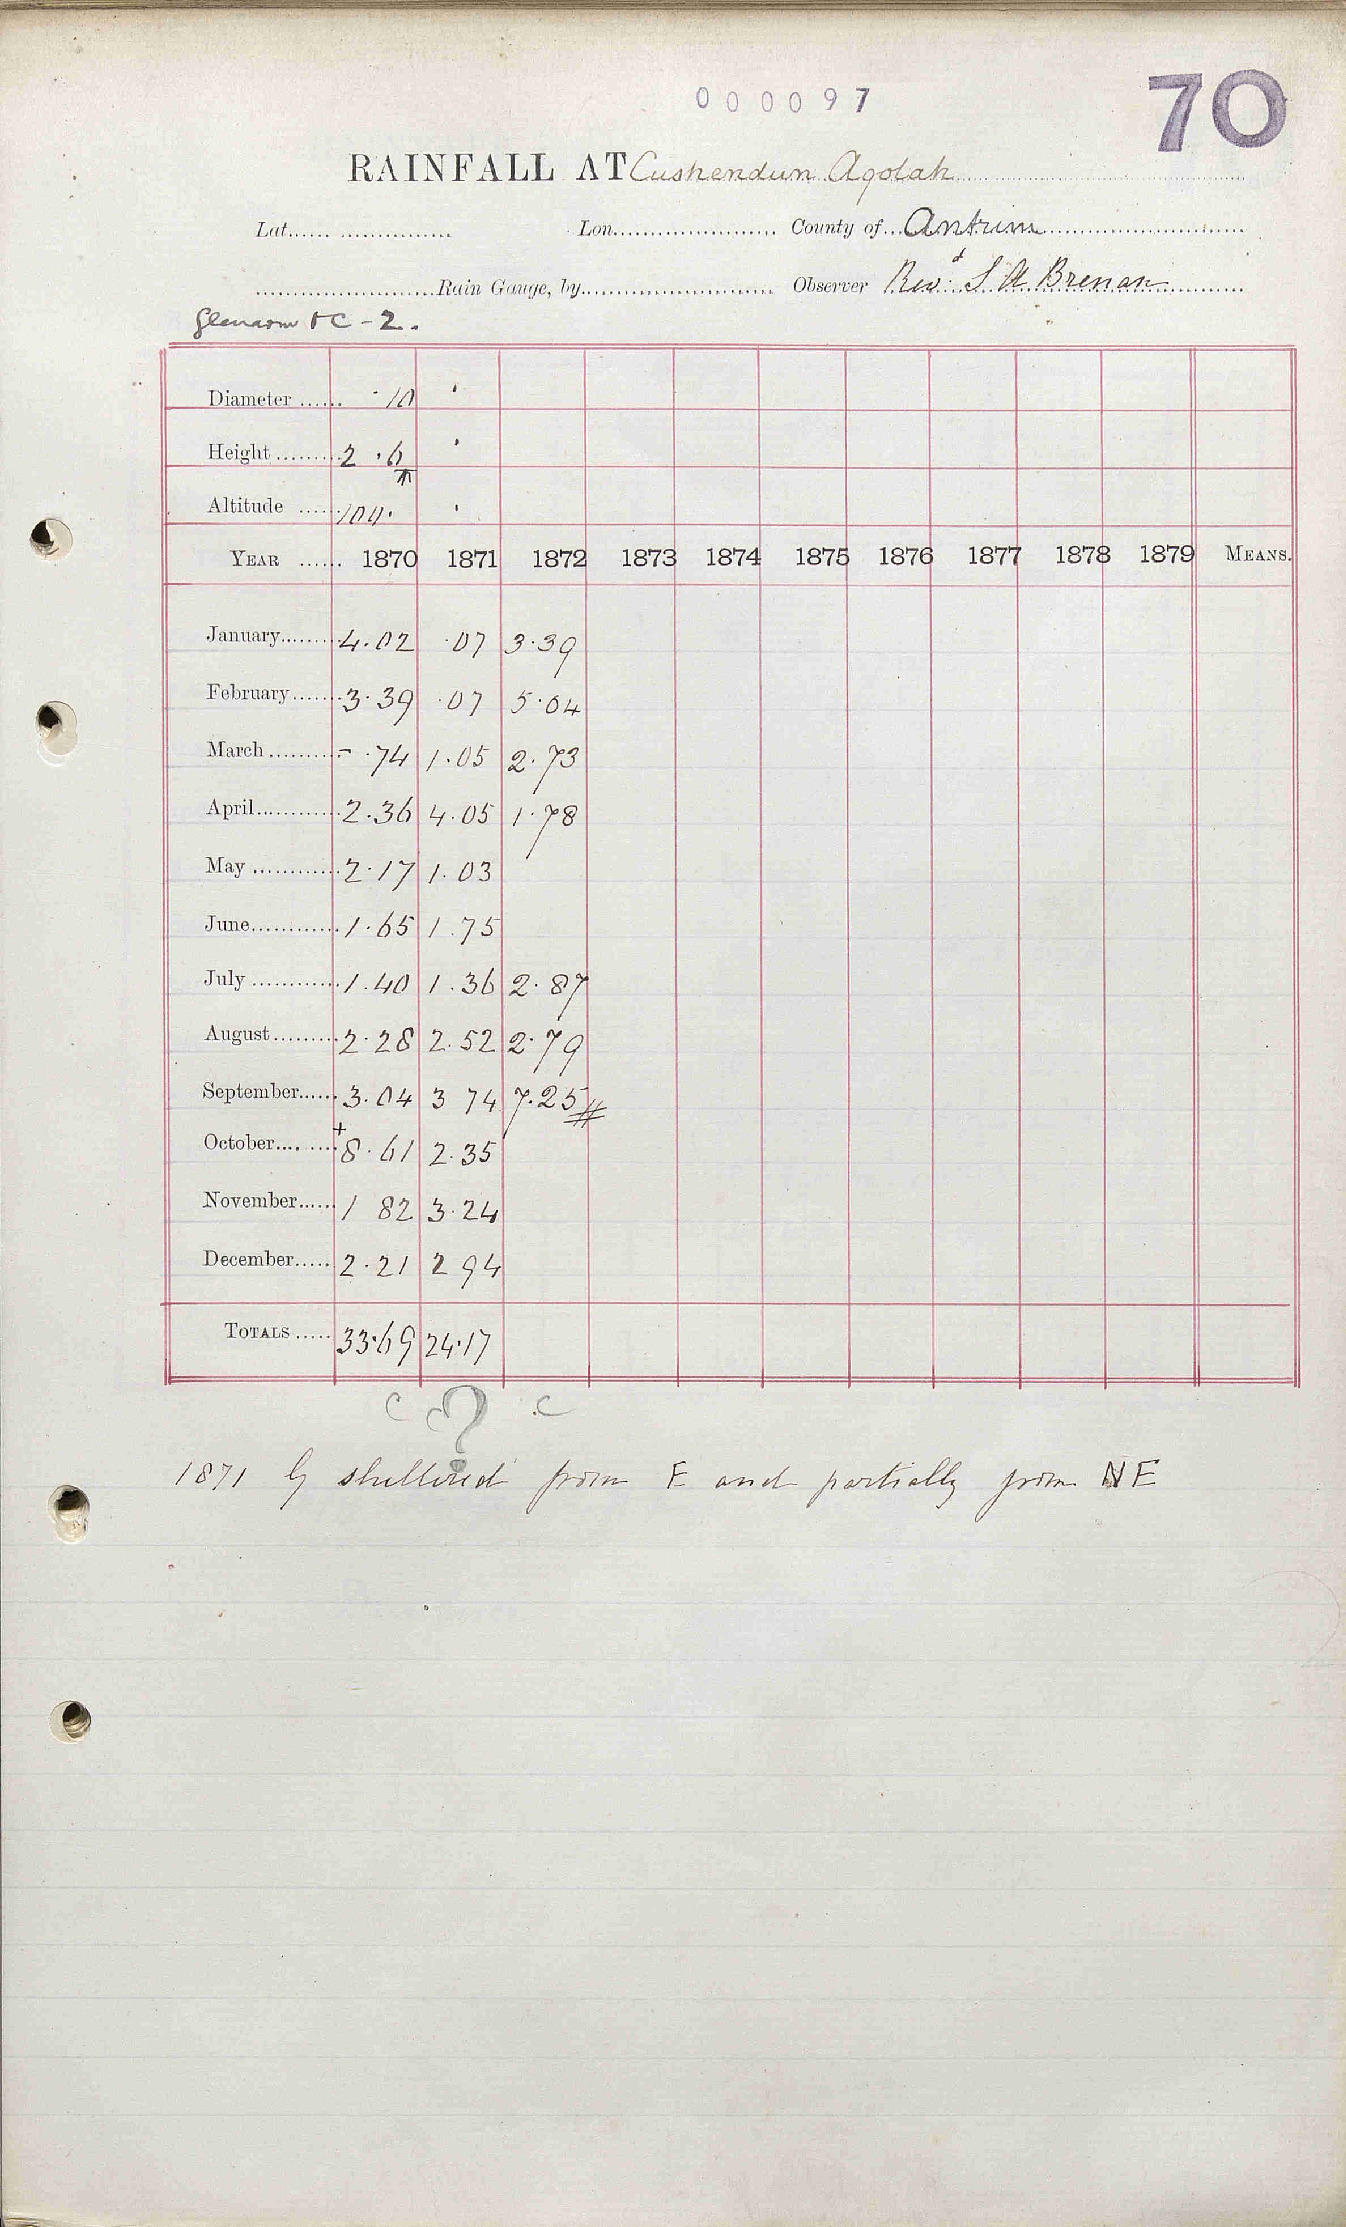 000097
70
RAINFALL AT Cushendun Agolah
Lat. Lon. County of Antrim
Rain Gauge, by Observer Revd. S A Brenan
Glenarm FC - 2.
Diameter 10 "
Height 2 . 6
Altitude 100 . "
YEAR 1870 1871 1872 1873 1874 1875 1876 1877 1878 1879 MEANS.
January 4.02 .07 3.39
February 3.39 .07 5.04
March - .74 1.05 2.73
April 2.36 4.05 1.78
May 2.17 1.03
June 1.65 1.75
July 1.40 1.36 2.87
August 2.28 2.52 2.79
September 3.04 3 74 7.25 #
October +8.61 2.35
November 1 82 3.24
December 2.21 2 94
TOTALS 33.69 24.17
C C ? C
1871 G sheltered from E and partially from NE